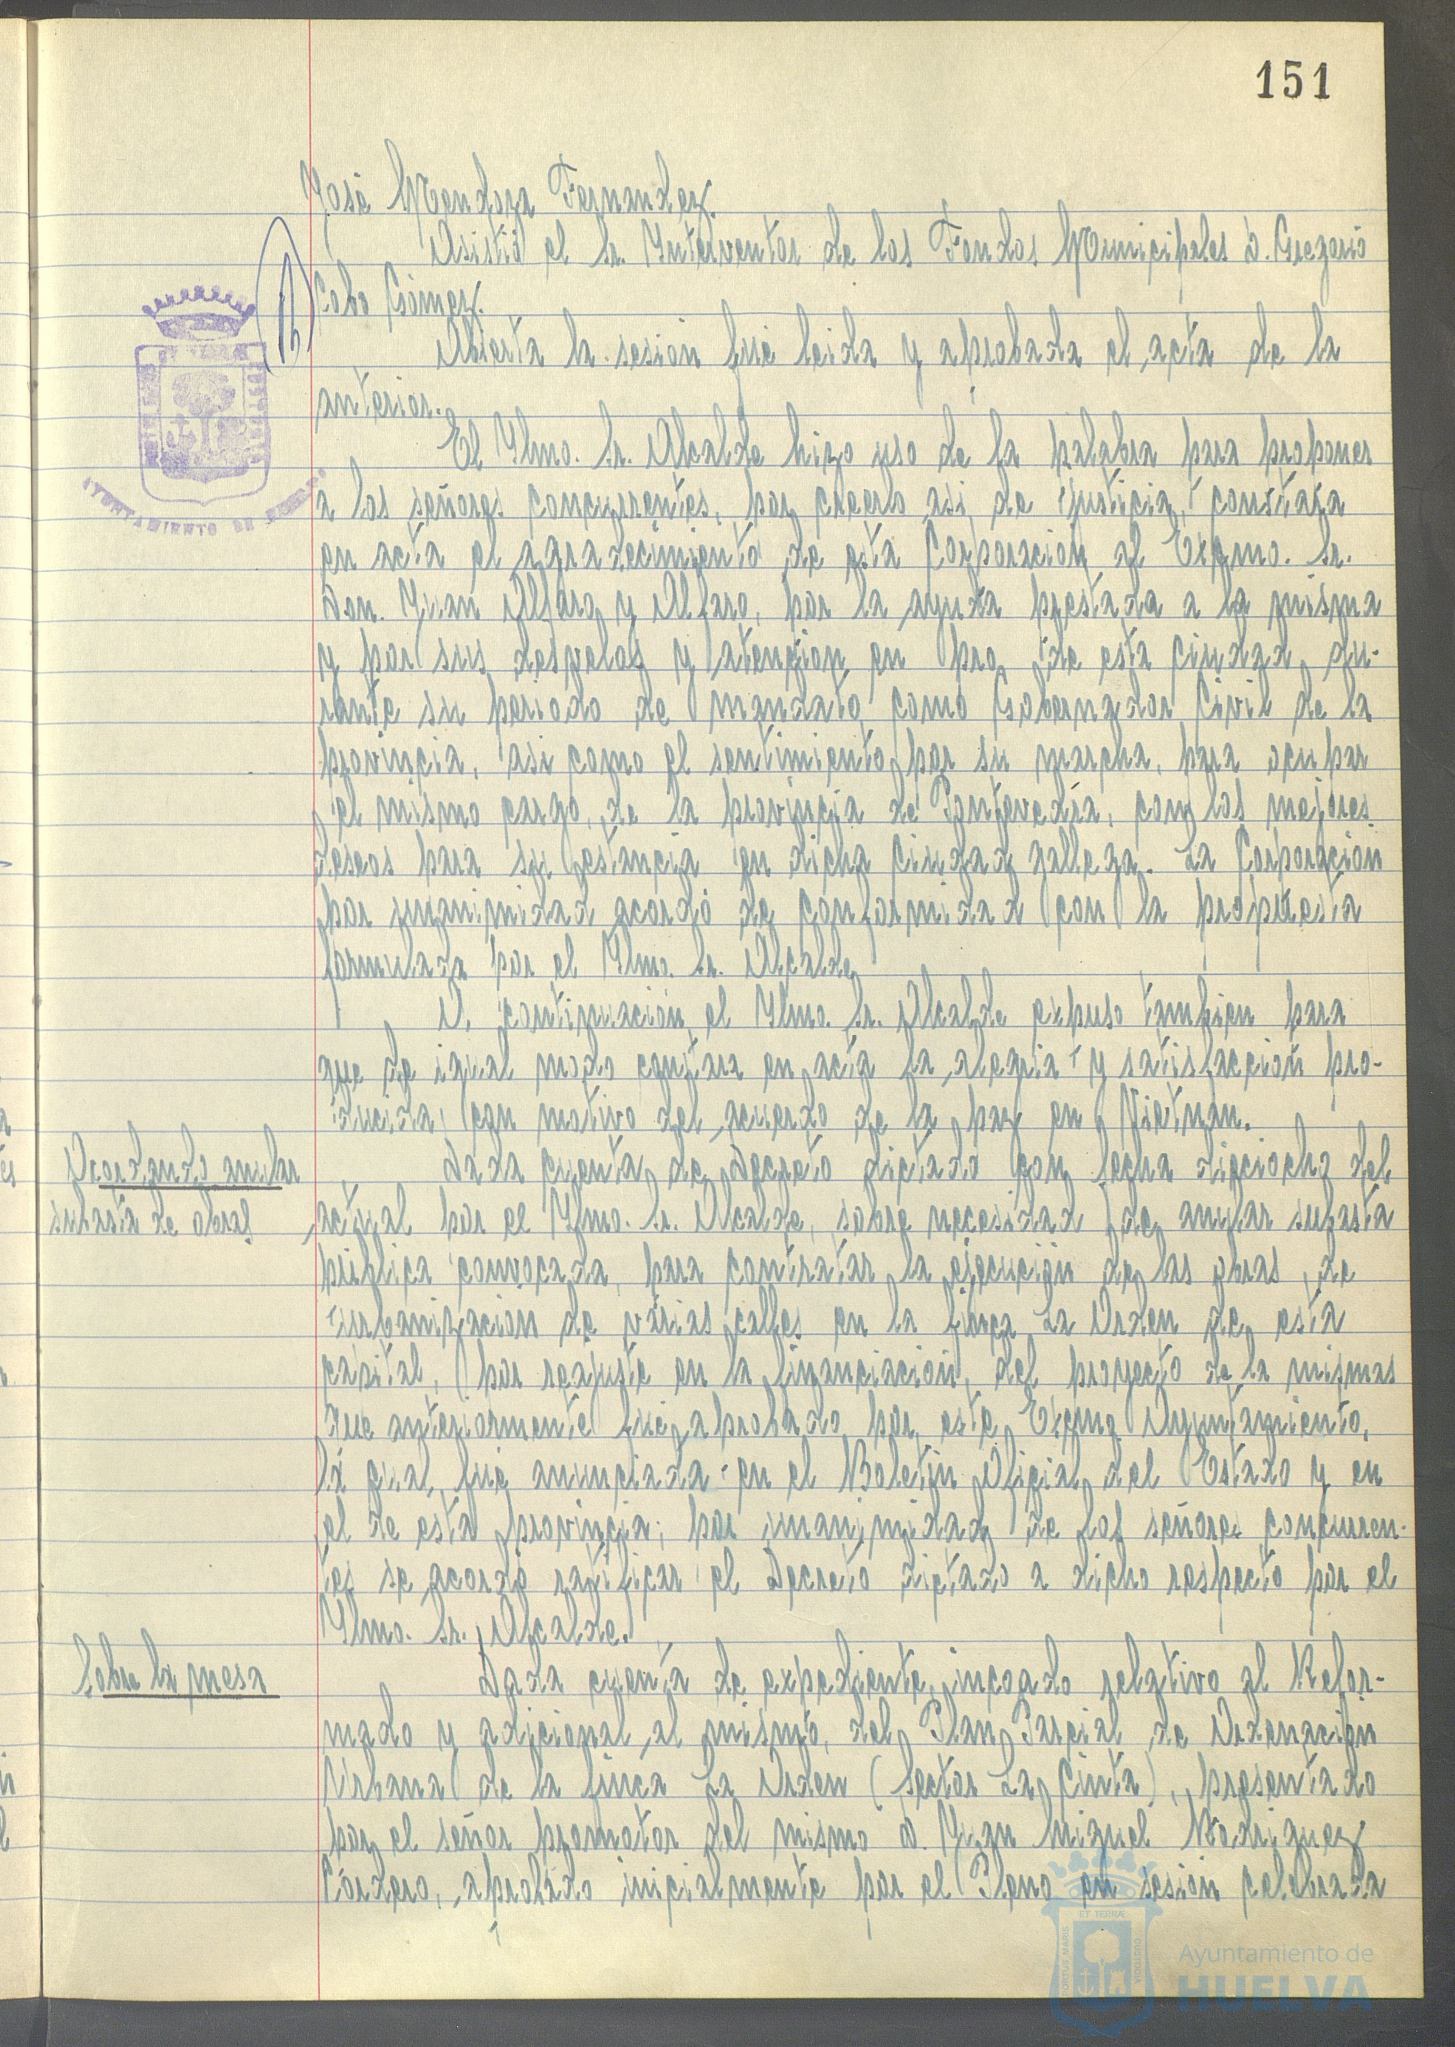 151
José Mendoza Fernandez.
Asistió el Sr. Interventor de los Fondos Municipales D. Gregorio
Cobo Gómez.
Abierta la sesión fué leida y aprobada el acta de la
anterior.
El Ylmo. Sr. Alcalde hizo uso de la palabra para proponer
a los señores concurrentes, por creerlo asi de justicia, constara
en acta el agradecimiento de esta Corporación al Excmo. Sr.
Don. Juan Alfaro y Alfaro, por la ayuda prestada a la misma
y por sus desvelos y atención en pro de esta ciudad, du-
rante su periodo de mandato como Gobernador Civil de la
provincia, asi como el sentimiento por su marcha, para ocupar
el mismo cargo, de la provincia de Pontevedra, con los mejores
deseos para su estancia en dicha ciudad gallega. La Corporación
por unanimidad acordó de conformidad con la propuesta
formulada por el Ylmo. Sr. Alcalde.
A continuación el Ylmo. Sr. Alcalde expuso tambien para
que de igual modo constara en acta la alegria y satisfacción pro-
ducida, con motivo del acuerdo de la paz en Vietnan.
Acordando anular
subasta de obras
Dada cuenta de Decreto dictado con fecha dieciocho del
actual por el Ylmo. Sr. Alcalde, sobre necesidad de anular subasta
pública convocada, para contratar la ejecución de las obras, de
urbanización de varias calles en la finca La Orden de esta
capital, por reajuste en la financiación, del proyecto de la mismas
que anteriormente fué aprobado por este Excmo Ayuntamiento,
la cual, fué anunciada en el Boletín Oficial del Estado y en
el de esta provincia; por unanimidad de los señores concurren-
tes se acordó ratificar el Decreto dictado a dicho respecto por el
Ylmo. Sr. Alcalde.
Sobre la mesa
Dada cuenta de expediente incoado relativo al Refor-
mado y adicional al mismo, del Plan Parcial de Ordenación
Urbana de la finca La Orden (Sector La Cinta), presentado
por el señor promotor del mismo D. Juan Miguel Rodriguez
Cordero, aprobado inicialmente por el Pleno en sesión celebrada
AYUNTAMIENTO DE HUELVA
PORTUS MARIS ET TERRÆ CUSTODIA
Ayuntamiento de
HUELVA